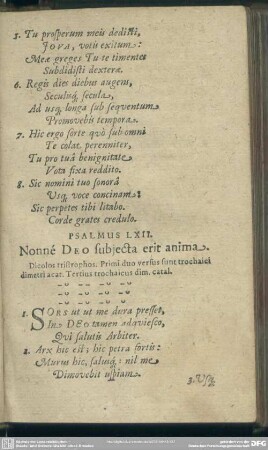 5. Tu prosperum meis dedisti,
JOVA, votis exitum:
Meæ greges Tu te timentes
Subdidisti dexteræ.
6. Regis dies diebus augens,
Seculiq; secula,
Ad usq; longa sub seqventum
Promovebis tempora.
7. Hic ergo sorte quò sub omni
Te colat perenniter,
Tu pro tuâ benignitate
Vota fixa reddito.
8. Sic nomini tuo sonorâ
Usq; voce concinam:
Sic perpetes tibi litabo
Corde grates credulo.
PSALMUS LXII.
Nonné DEO subjecta erit anima.
Dicolos tristrophos. Primi duo versus sunt trochaici
dimetri acat. Tertius trochaicus dim. catal.
1. SORS ut ut me dura presset,
In DEO tamen adqviesco,
Qvi salutis Arbiter.
2. Arx hic est; hic petra fortis:
Murus hic, salusq;: nil me
Dimovebit uspiam.
3. Usq;